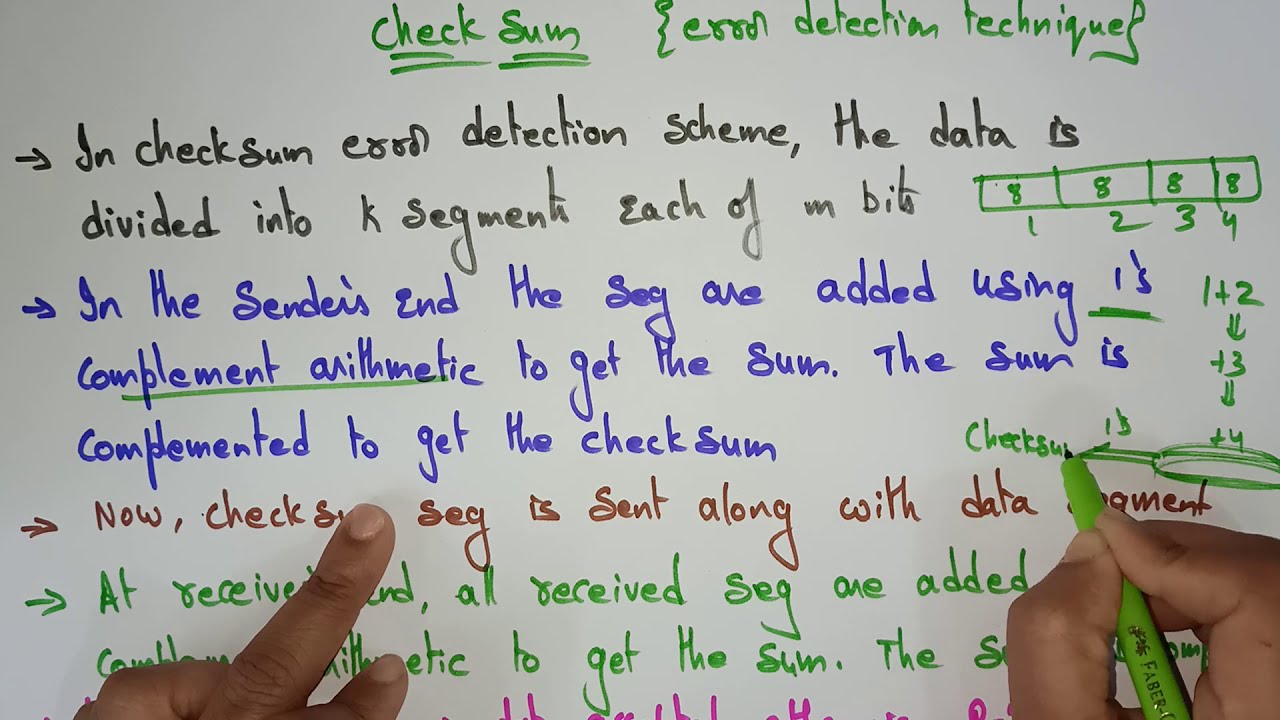 Check Sum {error detection technique}
→ In checksum error detection scheme, the data is
divided into k segments each of m bits
8 8 8 8
1 2 3 4
→ In the Sender's End the seg are added using 1's
1+2
complement arithmetic to get the sum. The sum is
+3
Complemented to get the checksum
Checksum 1's +4
→ Now, checksum seg is sent along with data segment
→ At received end, all received seg are added
arithmetic to get the sum. The
FABER-C